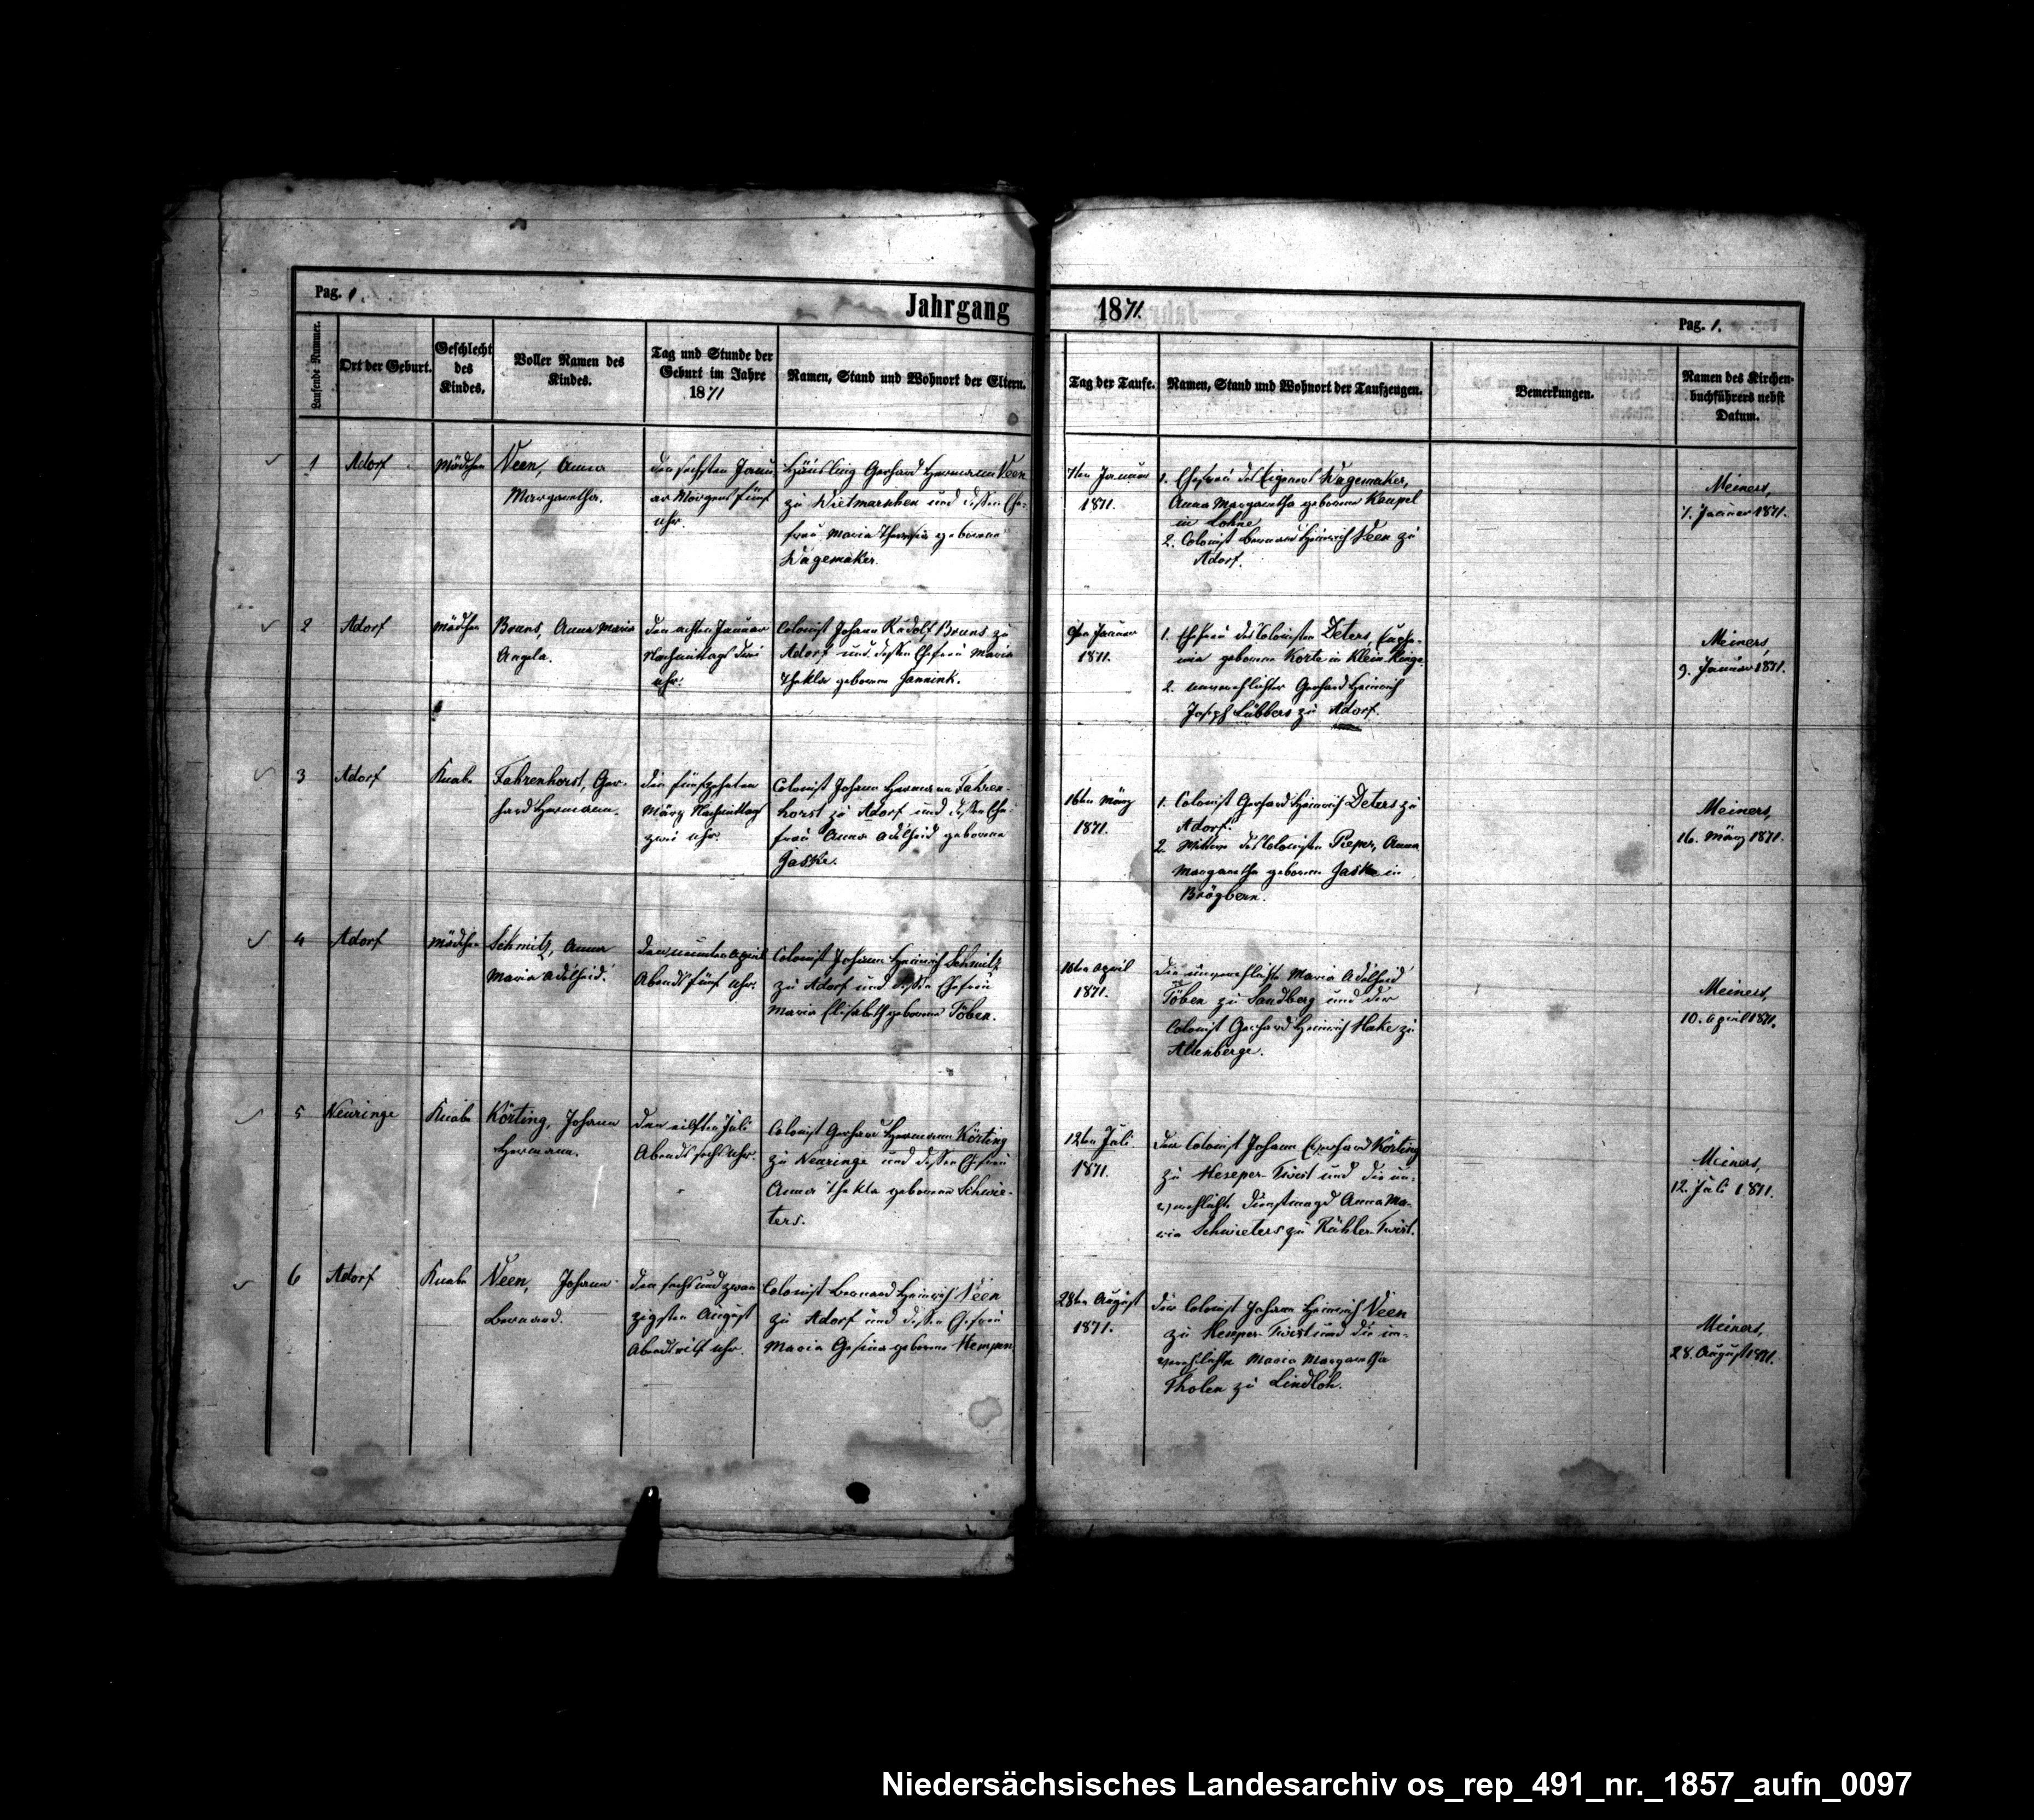 Pag. 1.
Jahrgang 1871.
Pag. 1.
Laufende Nummer.
Ort der Geburt.
Geschlecht
des
Kindes.
Voller Namen des
Kindes.
Tag und Stunde der
Geburt im Jahre
1871
Namen, Stand und Wohnort der Eltern.
Tag der Taufe.
Namen, Stand und Wohnort der Taufzeugen.
Bemerkungen.
Namen des Kirchen-
buchführers nebst
Datum.
1
Adorf
Mädchen
Veen, Anna
Margaretha.
den sechsten Janu
ar Morgens fünf
Uhr.
Häusling Gerhard Hermann Veen
zu Wietmarschen und dessen Ehe-
frau Maria Theresia geborene
Wagemaker.
7ten Januar
1871.
1. Ehefrau des Eigeners Wagemaker,
Anna Margaretha geborene Keupel
in Lohne
2. Colonist Bernard Heinrich Veen zu
Adorf.
Meiners,
7. Januar 1871.
2
Adorf
Mädchen
Bruns, Anna Maria
Angela.
den achten Januar
Nachmittags drei
Uhr.
Colonist Johann Rudolf Bruns zu
Adorf und dessen Ehefrau Maria
Thekla geborene Jannink.
9ten Januar
1871.
1. Ehefrau des Colonisten Deters, Euphe-
mia geborene Korte in Klein Ringe
2. unverehlichter Gerhard Heinrich
Joseph Lübbers zu Adorf.
Meiners,
9. Januar 1871.
3
Adorf
Knabe
Fahrenhorst, Ger-
hard Hermann.
den fünfzehnten
März Nachmittags
zwei Uhr.
Colonist Johann Hermann Fahren-
horst zu Adorf und dessen Ehe-
frau Anna Adelheid geborene
Jaske.
16ten März
1871.
1. Colonist Gerhard Heinrich Deters zu
Adorf.
2. Wittwe des Colonisten Pieper, Anna
Margaretha geborene Jaske in
Brögbern.
Meiners,
16. März 1871.
4
Adorf
Mädchen
Schmitz, Anna
Maria Adelheid.
den neunten April
Abends fünf Uhr.
Colonist Johann Heinrich Schmitz
zu Adorf und dessen Ehefrau
Maria Elisabeth geborene Töben.
10ten April
1871.
Die unverehlichte Maria Adelheid
Töben zu Sandberg und der
Colonist Gerhard Heinrich Hake zu
Altenberge.
Meiners,
10. April 1871.
5
Neuringe
Knabe
Körting, Johann
Hermann.
den eilften Juli
Abends sechs Uhr.
Colonist Gerhard Hermann Körting
zu Neuringe und dessen Ehefrau
Anna Thekla geborene Schwie-
ters.
12ten Juli
1871.
Der Colonist Johann Gerhard Körting
zu Heseper-Twist und die un-
verehlichte Dienstmagd Anna Ma-
ria Schwieters zu Rühler-Twist.
Meiners,
12. Juli 1871.
6
Adorf
Knabe
Veen, Johann
Bernard.
den sechs und zwan
zigsten August
Abends eilf Uhr.
Colonist Bernard Heinrich Veen
zu Adorf und dessen Ehefrau
Maria Gesina geborene Hempen
28ten August
1871.
Der Colonist Johann Heinrich Veen
zu Heseper-Twist und die un-
verehlichte Maria Margaretha
Tholen zu Lindloh.
Meiners,
28. August 1871.
Niedersächsisches Landesarchiv os_rep_491_nr._1857_aufn_0097